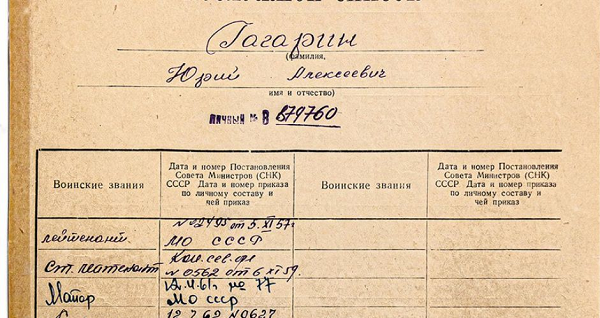 Гагарин
(фамилия,
Юрий Алексеевич
имя и отчество)
ЛИЧНЫЙ № В 879760
Воинские звания
Дата и номер Постановления Совета Министров (СНК) СССР Дата и номер приказа по личному составу и чей приказ
Воинские звания
Дата и номер Постановления Совета Министров (СНК) СССР Дата и номер приказа по личному составу и чей приказ
№ 02495 от 5.XI 57г
лейтенант
МО СССР
Ком. сев. фл
Ст. лейтенант
№ 0562 от 6 XI 59г.
Майор
12.4.61г. № 77
МО СССР
12.7.62 № 0627